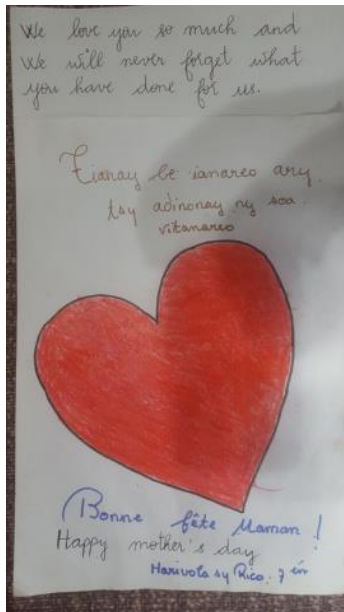 We love you so much and
We will never forget what
you have done for us.
Tianay be ianareo ary
tsy adinonay ny soa
vitanareo
Bonne fête Maman !
Happy mother's day
Harivola sy Rico, 7 èm